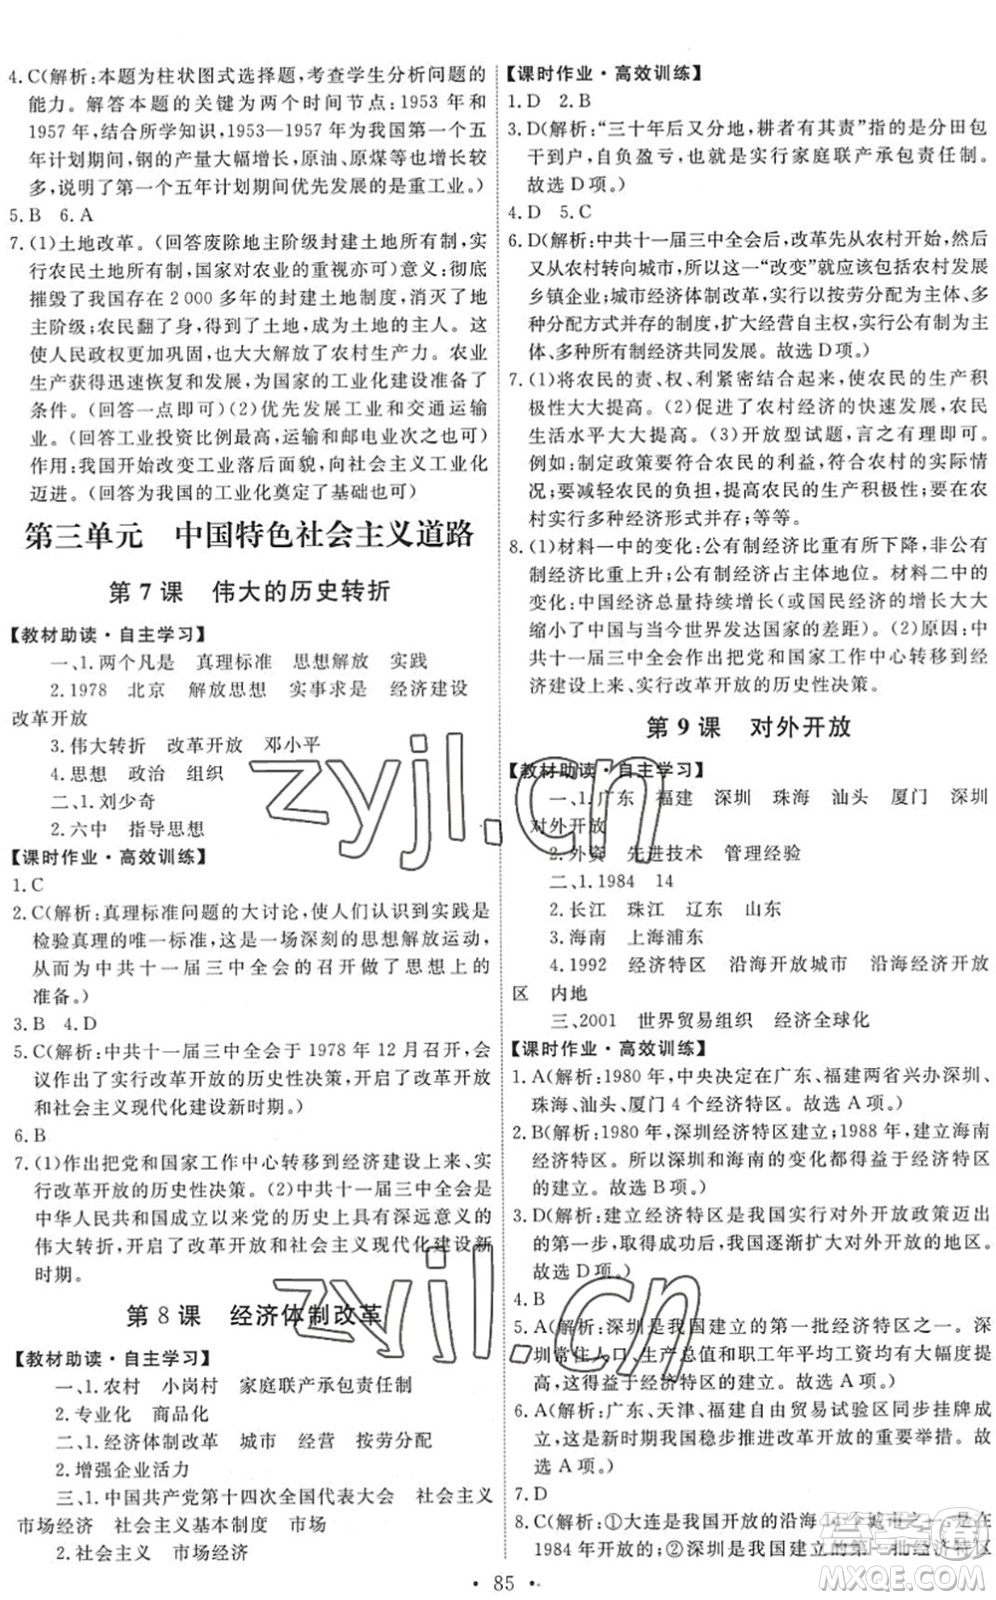 4. C(解析:本题为柱状图式选择题,考查学生分析问题的
能力。解答本题的关键为两个时间节点:1953 年和
1957 年,结合所学知识,1953—1957 年为我国第一个五
年计划期间,钢的产量大幅增长,原油、原煤等也增长较
多,说明了第一个五年计划期间优先发展的是重工业。)
5. B 6. A
7. (1)土地改革。(回答废除地主阶级封建土地所有制,实
行农民土地所有制,国家对农业的影响亦可)意义:彻底
摧毁了我国存在 2 000 多年的封建土地制度,消灭了地
主阶级;农民翻了身,得到了土地,成为土地的主人。这
使人民政权更加巩固,也大大解放了农村生产力。农业
生产获得迅速恢复和发展,为国家的工业化建设准备了
条件。(回答一点即可)(2)优先发展工业和交通运输
业。(回答工业投资比例最高,运输和邮电业次之也可)
作用:我国开始改变工业落后面貌,向社会主义工业化
迈进。(回答为我国的工业化奠定了基础也可)
第三单元 中国特色社会主义道路
第 7 课 伟大的历史转折
【教材助读·自主学习】
一、1. 两个凡是 真理标准 思想解放 实践
2. 1978 北京 解放思想 实事求是 经济建设
改革开放
3. 伟大转折 改革开放 邓小平
4. 思想 政治 组织
二、1. 刘少奇
2. 六中 指导思想
【课时作业·高效训练】
1. C
2. C(解析:真理标准问题的大讨论,使人们认识到实践是
检验真理的唯一标准,这是一场深刻的思想解放运动,
从而为中共十一届三中全会的召开做了思想上的
准备。)
3. B 4. D
5. C(解析:中共十一届三中全会于 1978 年 12 月召开,会
议作出了实行改革开放的历史性决策,开启了改革开放
和社会主义现代化建设新时期。)
6. B
7. (1)作出把党和国家工作中心转移到经济建设上来、实
行改革开放的历史性决策。(2)中共十一届三中全会是
中华人民共和国成立以来党的历史上具有深远意义的
伟大转折,开启了改革开放和社会主义现代化建设新
时期。
第 8 课 经济体制改革
【教材助读·自主学习】
一、1. 农村 小岗村 家庭联产承包责任制
2. 专业化 商品化
二、1. 经济体制改革 城市 经营 按劳分配
2. 增强企业活力
三、1. 中国共产党第十四次全国代表大会 社会主义
市场经济 社会主义基本制度 市场
2. 社会主义 市场经济
【课时作业·高效训练】
1. D 2. B
3. D(解析:“三十年后又分地,耕者有其责”指的是分田包
干到户,自负盈亏,也就是实行家庭联产承包责任制。
故选 D 项。)
4. D 5. C
6. D(解析:中共十一届三中全会后,改革先从农村开始,然后
又从农村转向城市,所以这一“改变”就应该包括农村发展
乡镇企业;城市经济体制改革,实行以按劳分配为主体、多
种分配方式并存的制度,扩大经营自主权,实行公有制为主
体、多种所有制经济共同发展。故选 D 项。)
7. (1)将农民的责、权、利紧密结合起来,使农民的生产积
极性大大提高。(2)促进了农村经济的快速发展,农民
生活水平大大提高。(3)开放型试题,言之有理即可。
例如:制定政策要符合农民的利益,符合农村的实际情
况;要减轻农民的负担;要提高农民的生产积极性;要在农
村实行多种经济形式并存;等等。
8. (1)材料一中的变化:公有制经济比重有所下降,非公有
制经济比重上升;公有制经济占主体地位。材料二中的
变化:中国经济总量持续增长(或国民经济的增长大大
缩小了中国与当今世界发达国家的差距)。(2)原因:中
共十一届三中全会作出把党和国家工作中心转移到经
济建设上来、实行改革开放的历史性决策。
第 9 课 对外开放
【教材助读·自主学习】
一、1. 广东 福建 深圳 珠海 汕头 厦门 深圳
对外开放
2. 外资 先进技术 管理经验
二、1. 1984 14
2. 长江 珠江 辽东 山东
3. 海南 上海浦东
4. 1992 经济特区 沿海开放城市 沿海经济开放
区 内地
三、2001 世界贸易组织 经济全球化
【课时作业·高效训练】
1. A(解析:1980 年,中央决定在广东、福建两省兴办深圳、
珠海、汕头、厦门 4 个经济特区。故选 A 项。)
2. B(解析:1980 年,深圳经济特区建立;1988 年,建立海南
经济特区。所以深圳和海南的变化都得益于经济特区
的建立。故选 B 项。)
3. D(解析:建立经济特区是我国实行对外开放政策迈出
的第一步,取得成功后,我国逐渐扩大对外开放的地区。
故选 D 项。)
4. B
5. A(解析:深圳是我国建立的第一批经济特区之一。深
圳常住人口、生产总值和职工年平均工资均有大幅度提
高,这得益于经济特区的建立。故选 A 项。)
6. A(解析:广东、天津、福建自由贸易试验区同步挂牌成
立,这是新时期我国稳步推进改革开放的重要举措。故
选 A 项。)
7. D
8. C(解析:①大连是我国开放的沿海 14 个城市之一,是在
1984 年开放的;②深圳是我国建立的第一批经济特区
· 85 ·
zyjl.cn
zyjl.cn
答案圈
MXQE.COM